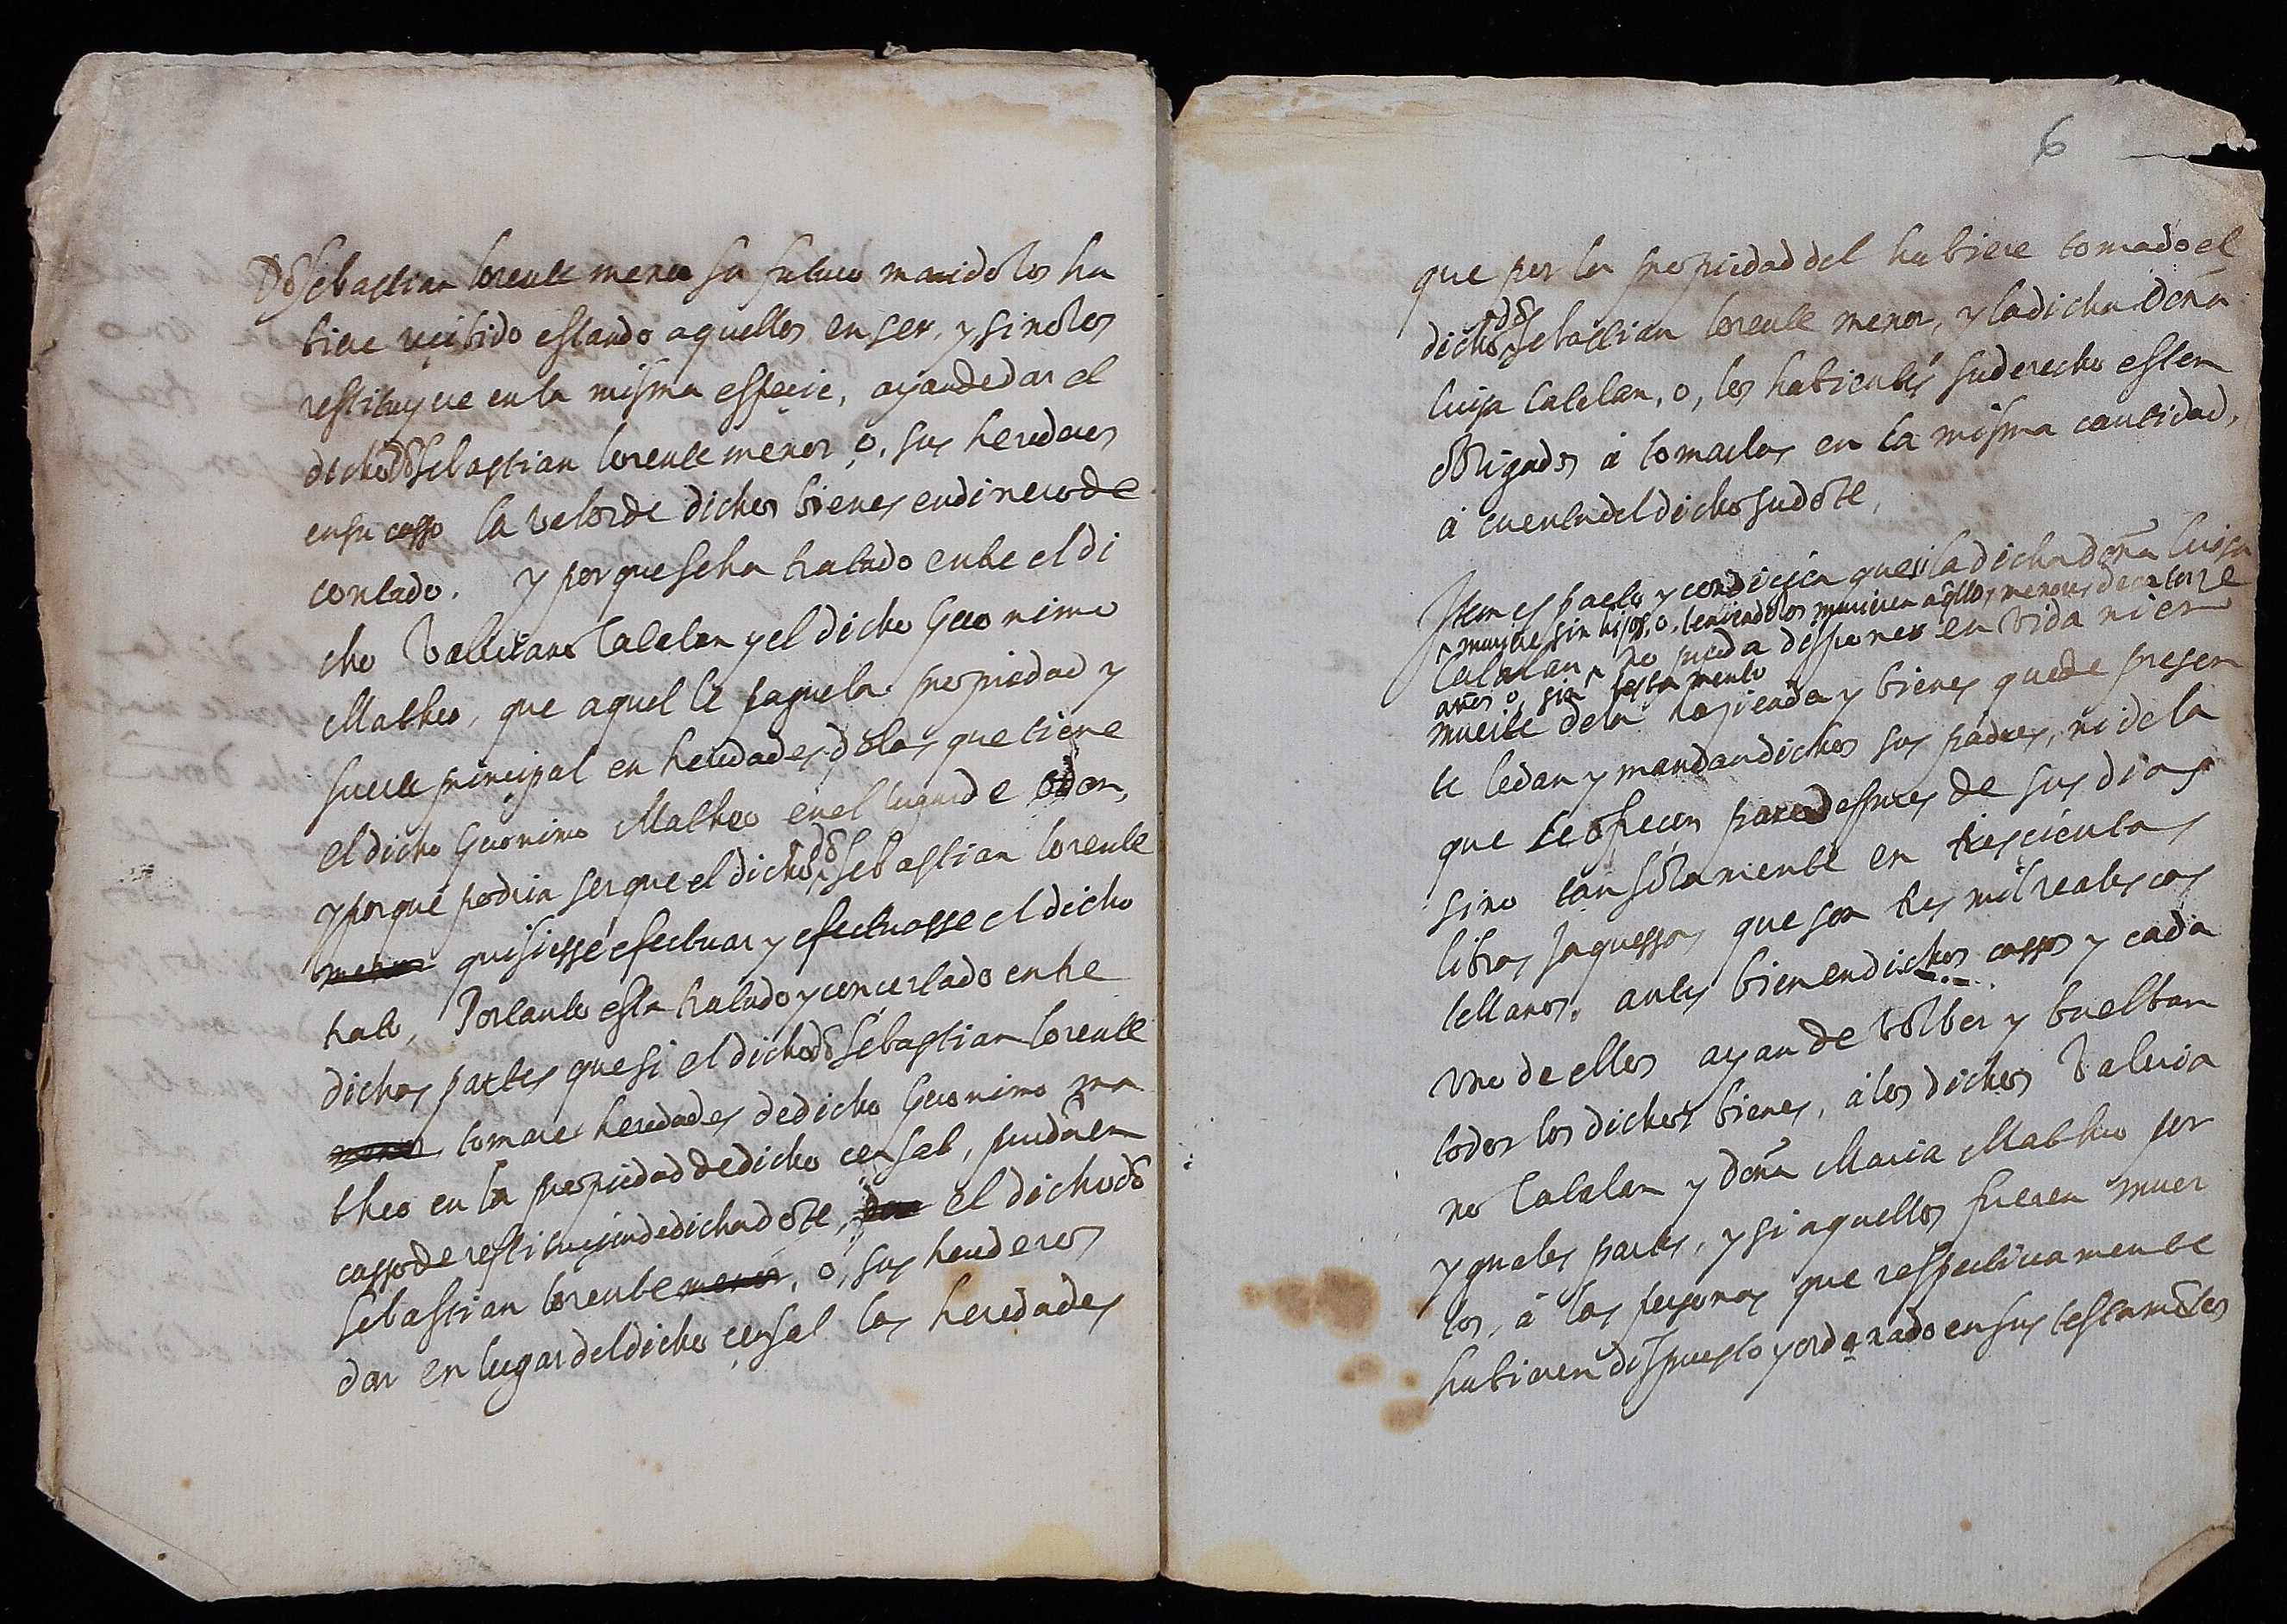 Dō Sebastian lorente menor su futuro marido los hu
biere reçibido estando aquellos en ser, y si no los
restituyere en la misma espeçie, ayan de dar el
dicho Dō Sebastian lorente menor o, sus herederos
en su casso la valor de dichos bienes en dinero de
contado. Y porque se ha tratado entre el di
cho Valeriano Catalan y el dicho Geronimo
Matheo, que aquel le pague la propiedad y
suerte prinçipal en heredades, dōlas que tiene
el dicho Geronimo Matheo en el lugar de odon,
y porque podria ser que el dicho dō Sebastian lorente
menor quisiesse efectuar y efectuasse el dicho
trato, Portanto esta tratado y concertado entre
dichas partes que si el dicho dō Sebastian lorente
menor tomare heredades de dicho Geronimo ma
theo en la propiedad de dicho çensal, puda en
casso de restituçion de dicha dote, el dicho dō
Sebastian lorente menor, o, sus herederos
dar en lugar del dicho çensal las heredades
6
que por la propiedad del hubiere tomado el
dicho dō Sebastian lorente menor, y la dicha doña
luisa Catalan, o, los habientes su derecho esten
obligados à tomarlas en la misma cantidad,
à cuenta del dicho su dote,
Item es pacto y condiçion que si la dicha doña luisa
^ muriere sin hijos, o, teniendolos murieren aqllos menores de catorze
Catalan ^ no pueda disponer en vida ni en
años o, sin testamento
muerte de la hazienda y bienes que de presen
te le dan y mandan dichos sus padres, ni de la
que le ofreçen para despues de sus dias
sino tan solamente en trescientas
libras Jaquessas que son tres mil reales cas
tellanos. antes bien en dichos cassos y cada
uno de ellos ayan de bolber y buelban
todos los dichos bienes, à los dichos Valeria
no Catalan y doña Maria Matheo por
yguales partes, y si aquellos fueren muer
tos, à las personas que respectivamente
hubieren dispuesto y ordenado en sus testamētos